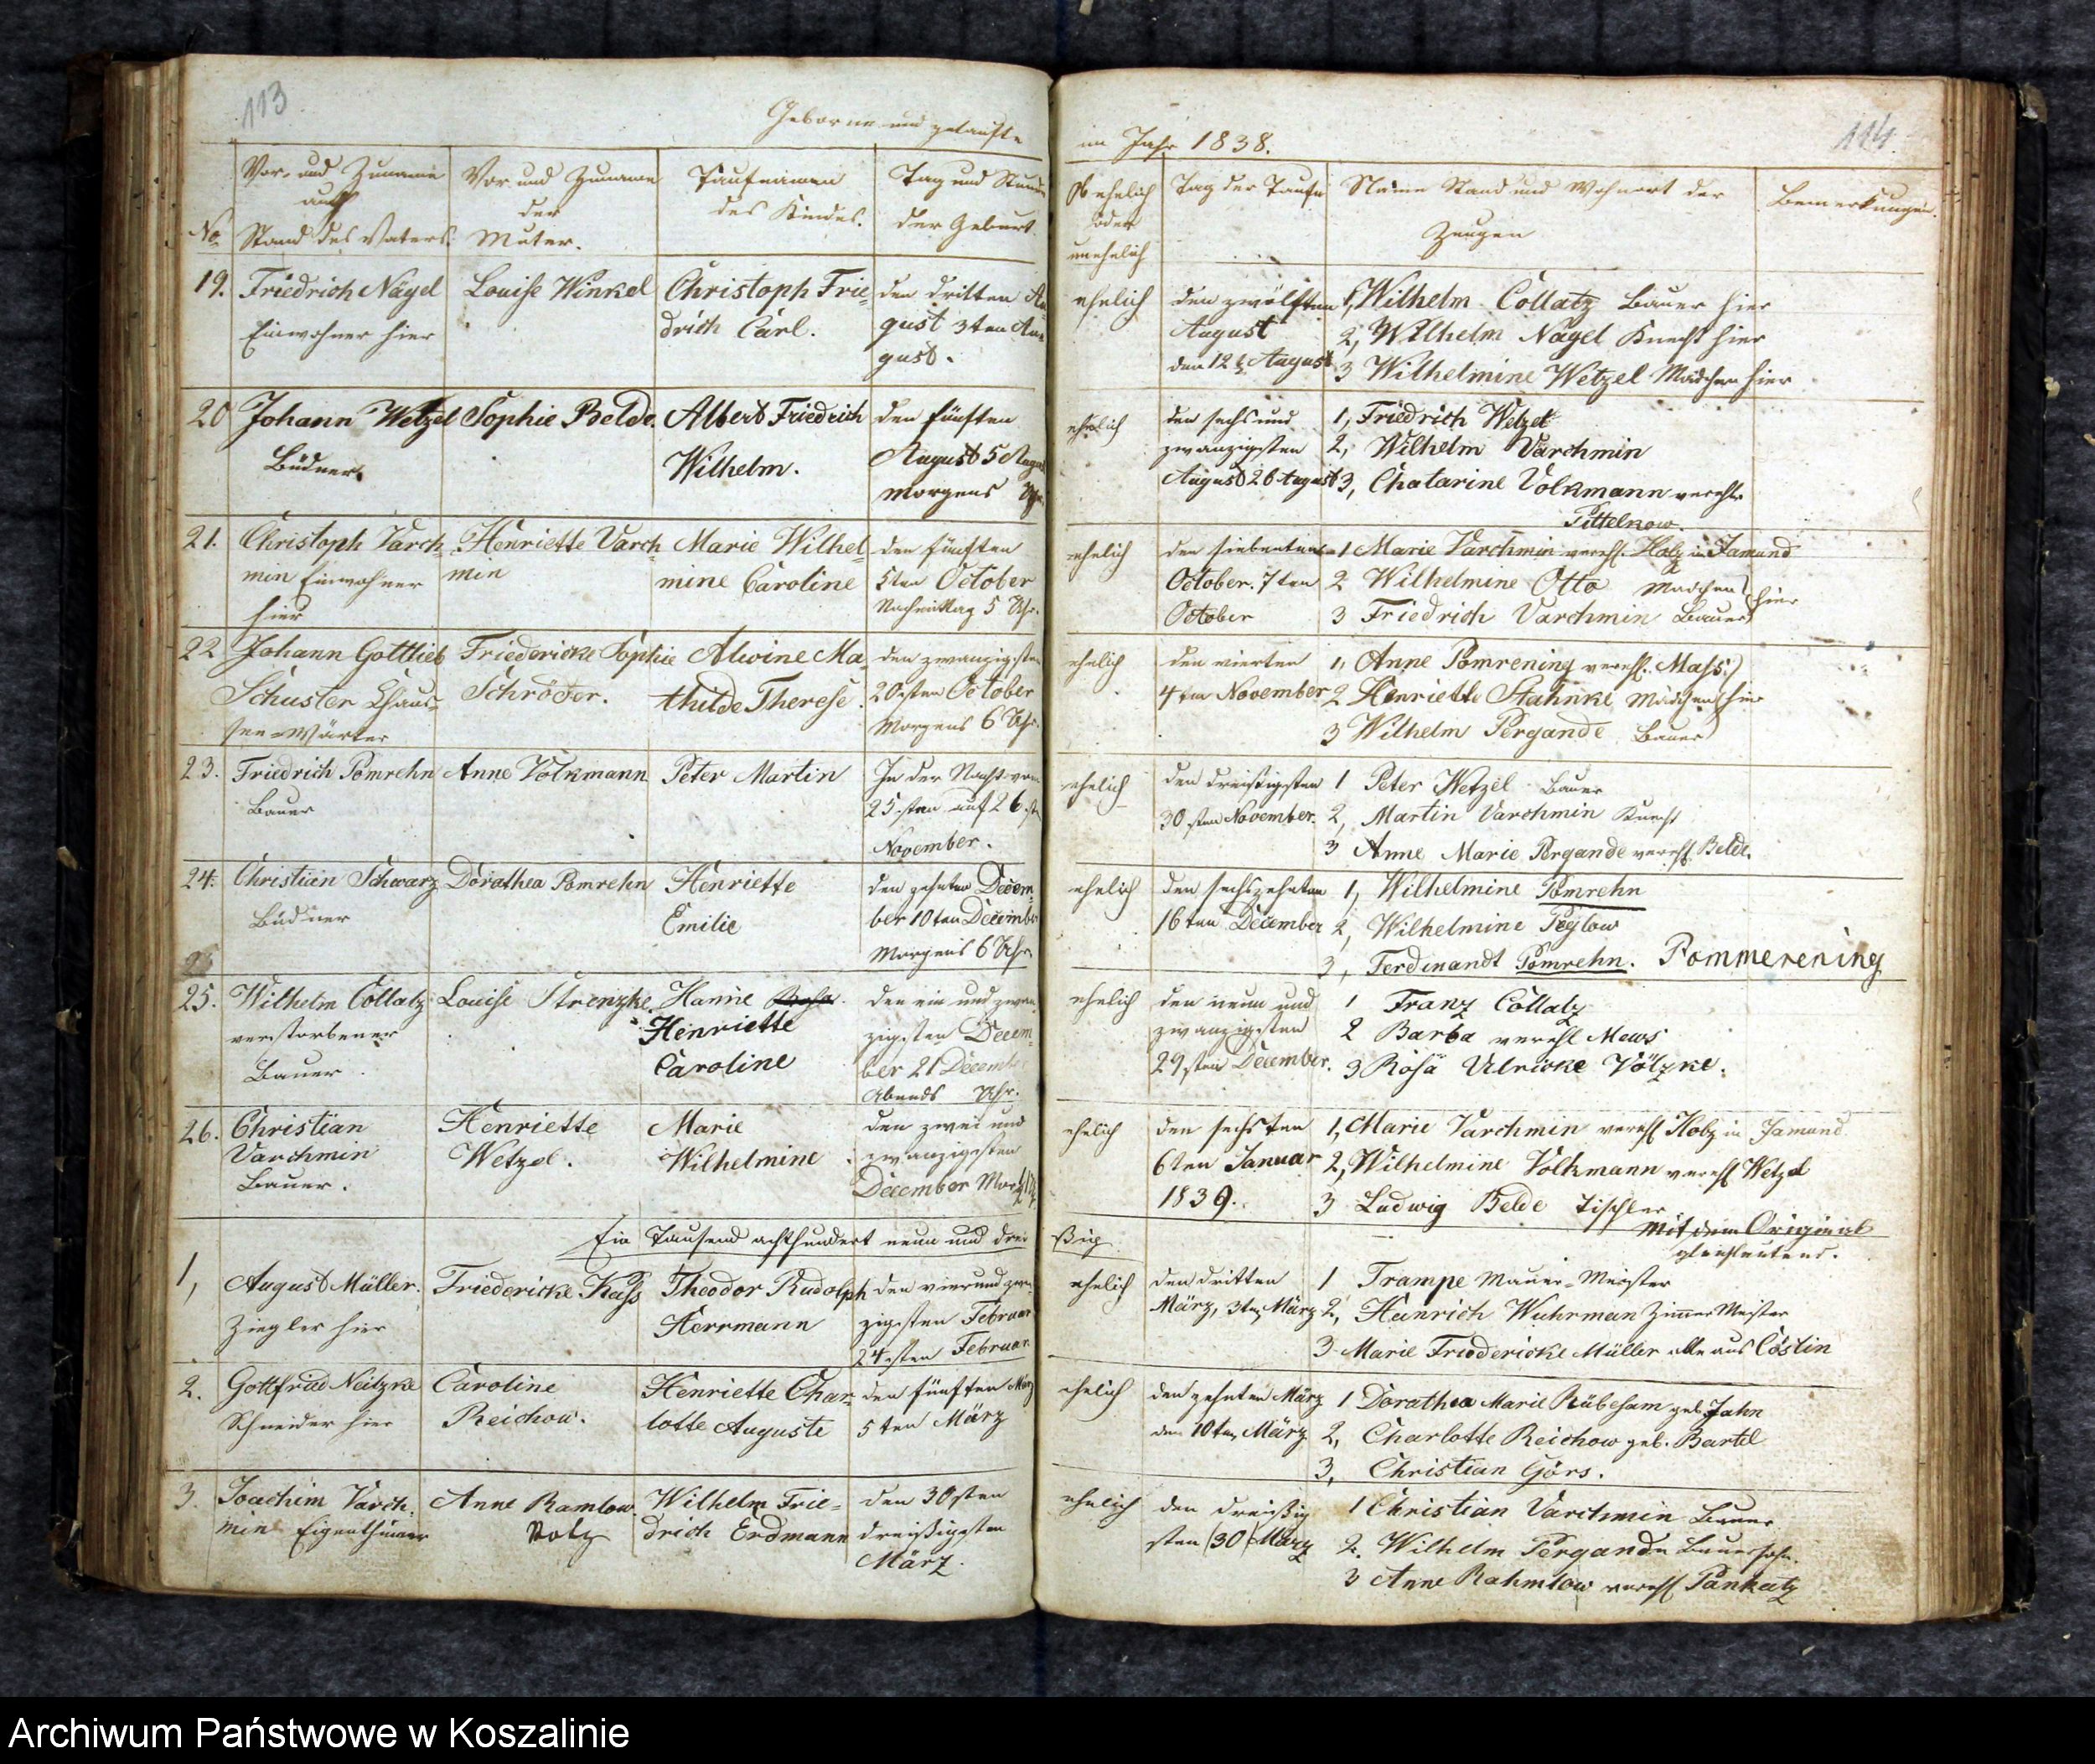 113
Geborne und getaufte
No
Vor- und Zuname
auch
Stand des Vaters.
Vor und Zuname
der
Mutter.
Taufnamen
des Kindes.
Tag und Stunde
der Geburt
19. Friedrich Nagel
Einwohner hier
Louise Winkel
Christoph Frie-
drich Carl.
den dritten Au
gust 3ten Au-
gust.
20 Johann Wetzel
Büdner.
Sophie Belde.
Albert Friedrich
Wilhelm.
den fünften
August 5 August
Morgens Uhr
21. Christoph Varch-
min Einwohner
hier
Henriette Varch
min
Marie Wilhel-
mine Caroline
den fünften
5ten October
Nachmittag 5 Uhr.
22 Johann Gottlieb
Schuster Chaus-
see-Wärter
Friedericke Sophie
Schröder.
Alwine Ma
thilde Therese.
den zwanzigsten
20sten October
Morgens 6 Uhr.
23. Friedrich Pomrehn
Bauer
Anne Volkmann
Peter Martin
In der Nacht vom
25sten auf 26 sten
November.
24. Christian Schwarz
Büdner
Dorathea Pomrehn
Henriette
Emilie
den zehnten Decem-
ber 10ten December
Morgens 6 Uhr
25. Wilhelm Collatz
verstorbener
Bauer
Louise Strenzke.
Hanne Rosa.
Henriette
Caroline
den ein und zwan
zigsten Decem-
ber 21 Decemb
Abends Uhr.
26. Christian
Varchmin
Bauer.
Henriette
Wetzel.
Marie
Wilhelmine
den zwei und
zwanzigsten
December
Ein Tausend achthundert neun und drei
1, August Müller.
Ziegler hier
Friedericke Kass
Theodor Rudolph
Herrmann
den vier und zwan
zigsten Februar
24sten Februar
2. Gottfried Neitzke
Schneider hier
Caroline
Reichow.
Henriette Char-
lotte Auguste
den fünften März
5ten März
3. Joachim Varch-
min Eigenthümer
Anne Ramlow.
Wilhelm Frie-
drich Erdmann
den 30sten
dreißigsten
März.
114.
im Jahr 1838.
Ob ehelich
oder
unehelich
Tag der Taufe
Name Stand und Wohnort der
Zeugen
Bemerkungen.
ehelich
den zwölften
August
den 12t August
1, Wilhelm Collatz Bauer hier
2, Wilhelm Nagel Knecht hier
3 Wilhelmine Wetzel Mädchen hier
ehelich
den sechs und
zwanzigsten
August 26 August
1, Friedrich Wetzel
2, Wilhelm Varchmin
3, Chatarine Volkmann verehl
Pittelkow.
ehelich
den siebenten
October. 7ten
October
1 Marie Varchmin verehl. Holz in Jamund
2 Wilhelmine Otto Mädchen
hier
3 Friedrich Varchmin Bauer
ehelich
den vierten
4ten November
1, Anne Pomrening verehl. Mass
2 Henriette Stahnke Mädchen hier
3 Wilhelm Pergande Bauer
ehelich
den dreißigsten
30sten November.
1 Peter Wetzel Bauer
2, Martin Varchmin Knecht
3 Anne Marie Pergande verehl. Belde.
ehelich
den sechszehnten
16ten December
1, Wilhelmine Pomrehn
2, Wilhelmine Peglow
3, Ferdinandt Pomrehn. Pommerening
ehelich
den neun und
zwanzigsten
29sten December.
1 Franz Collatz
2 Barba verehl Mews
3 Rosa Ulricke Völzke.
ehelich
den sechsten
6ten Januar
1839.
1, Marie Varchmin verehl Holz in Jamund
2, Wilhelmine Volkmann verehl Wetzel
3 Ludwig Belde Tischler
Mit dem Original
gleichlautend.
ßig
ehelich
den dritten
März, 3ten März
1 Trampe Mauer-Meister
2, Heinrich Wuhrman Zimmer Meister
3 Marie Friedericke Müller alle aus Cöslin
ehelich
den zehnten März
den 10ten März
1 Dorathea Marie Rübesam geb. Jahn
2, Charlotte Reichow geb. Bartel
3, Christian Görs.
ehelich
den dreißig
sten (30) März
1 Christian Varchmin Bauer
2. Wilhelm Pergande Bauersohn.
3 Anne Rahmlow verehl Pankatz
Archiwum Państwowe w Koszalinie